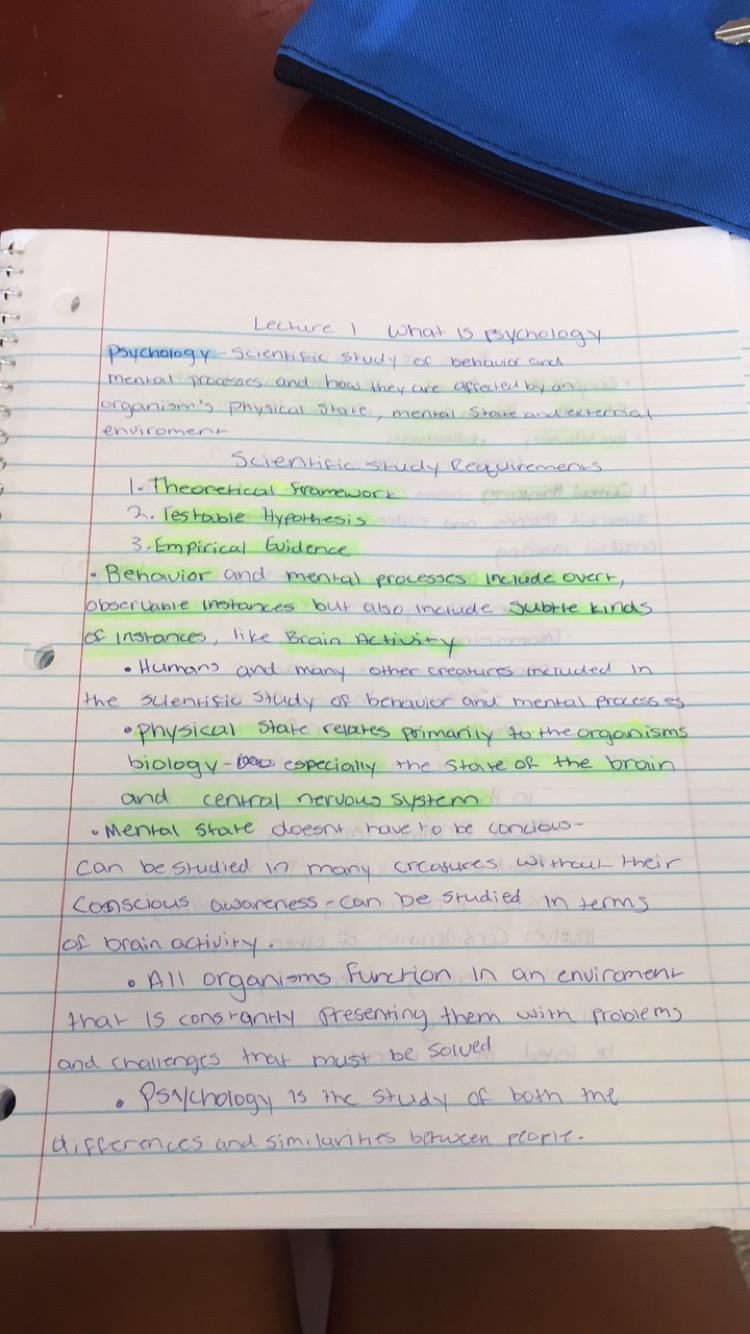 Lecture 1 What is psychology
Psychology - Scientific study of behavior and
mental processes and how they are affected by an
organism's physical state, mental state and external
enviroment
Scientific Study Requirements
1. Theoretical framework
2. Testable Hypothesis
3. Empirical Evidence
• Behavior and mental processes include overt,
observable instances but also include subtle kinds
of instances, like Brain Activity
• Humans and many other creatures included in
the scientific study of behavior and mental processes
• physical state relates primarily to the organisms
biology - especially the state of the brain
and central nervous system
• Mental state doesnt have to be concious -
can be studied in many creatures without their
conscious awareness - can be studied in terms
of brain activity.
• All organisms function in an enviroment
that is constantly presenting them with problems
and challenges that must be solved
• Psychology is the study of both the
differences and similarities between people.